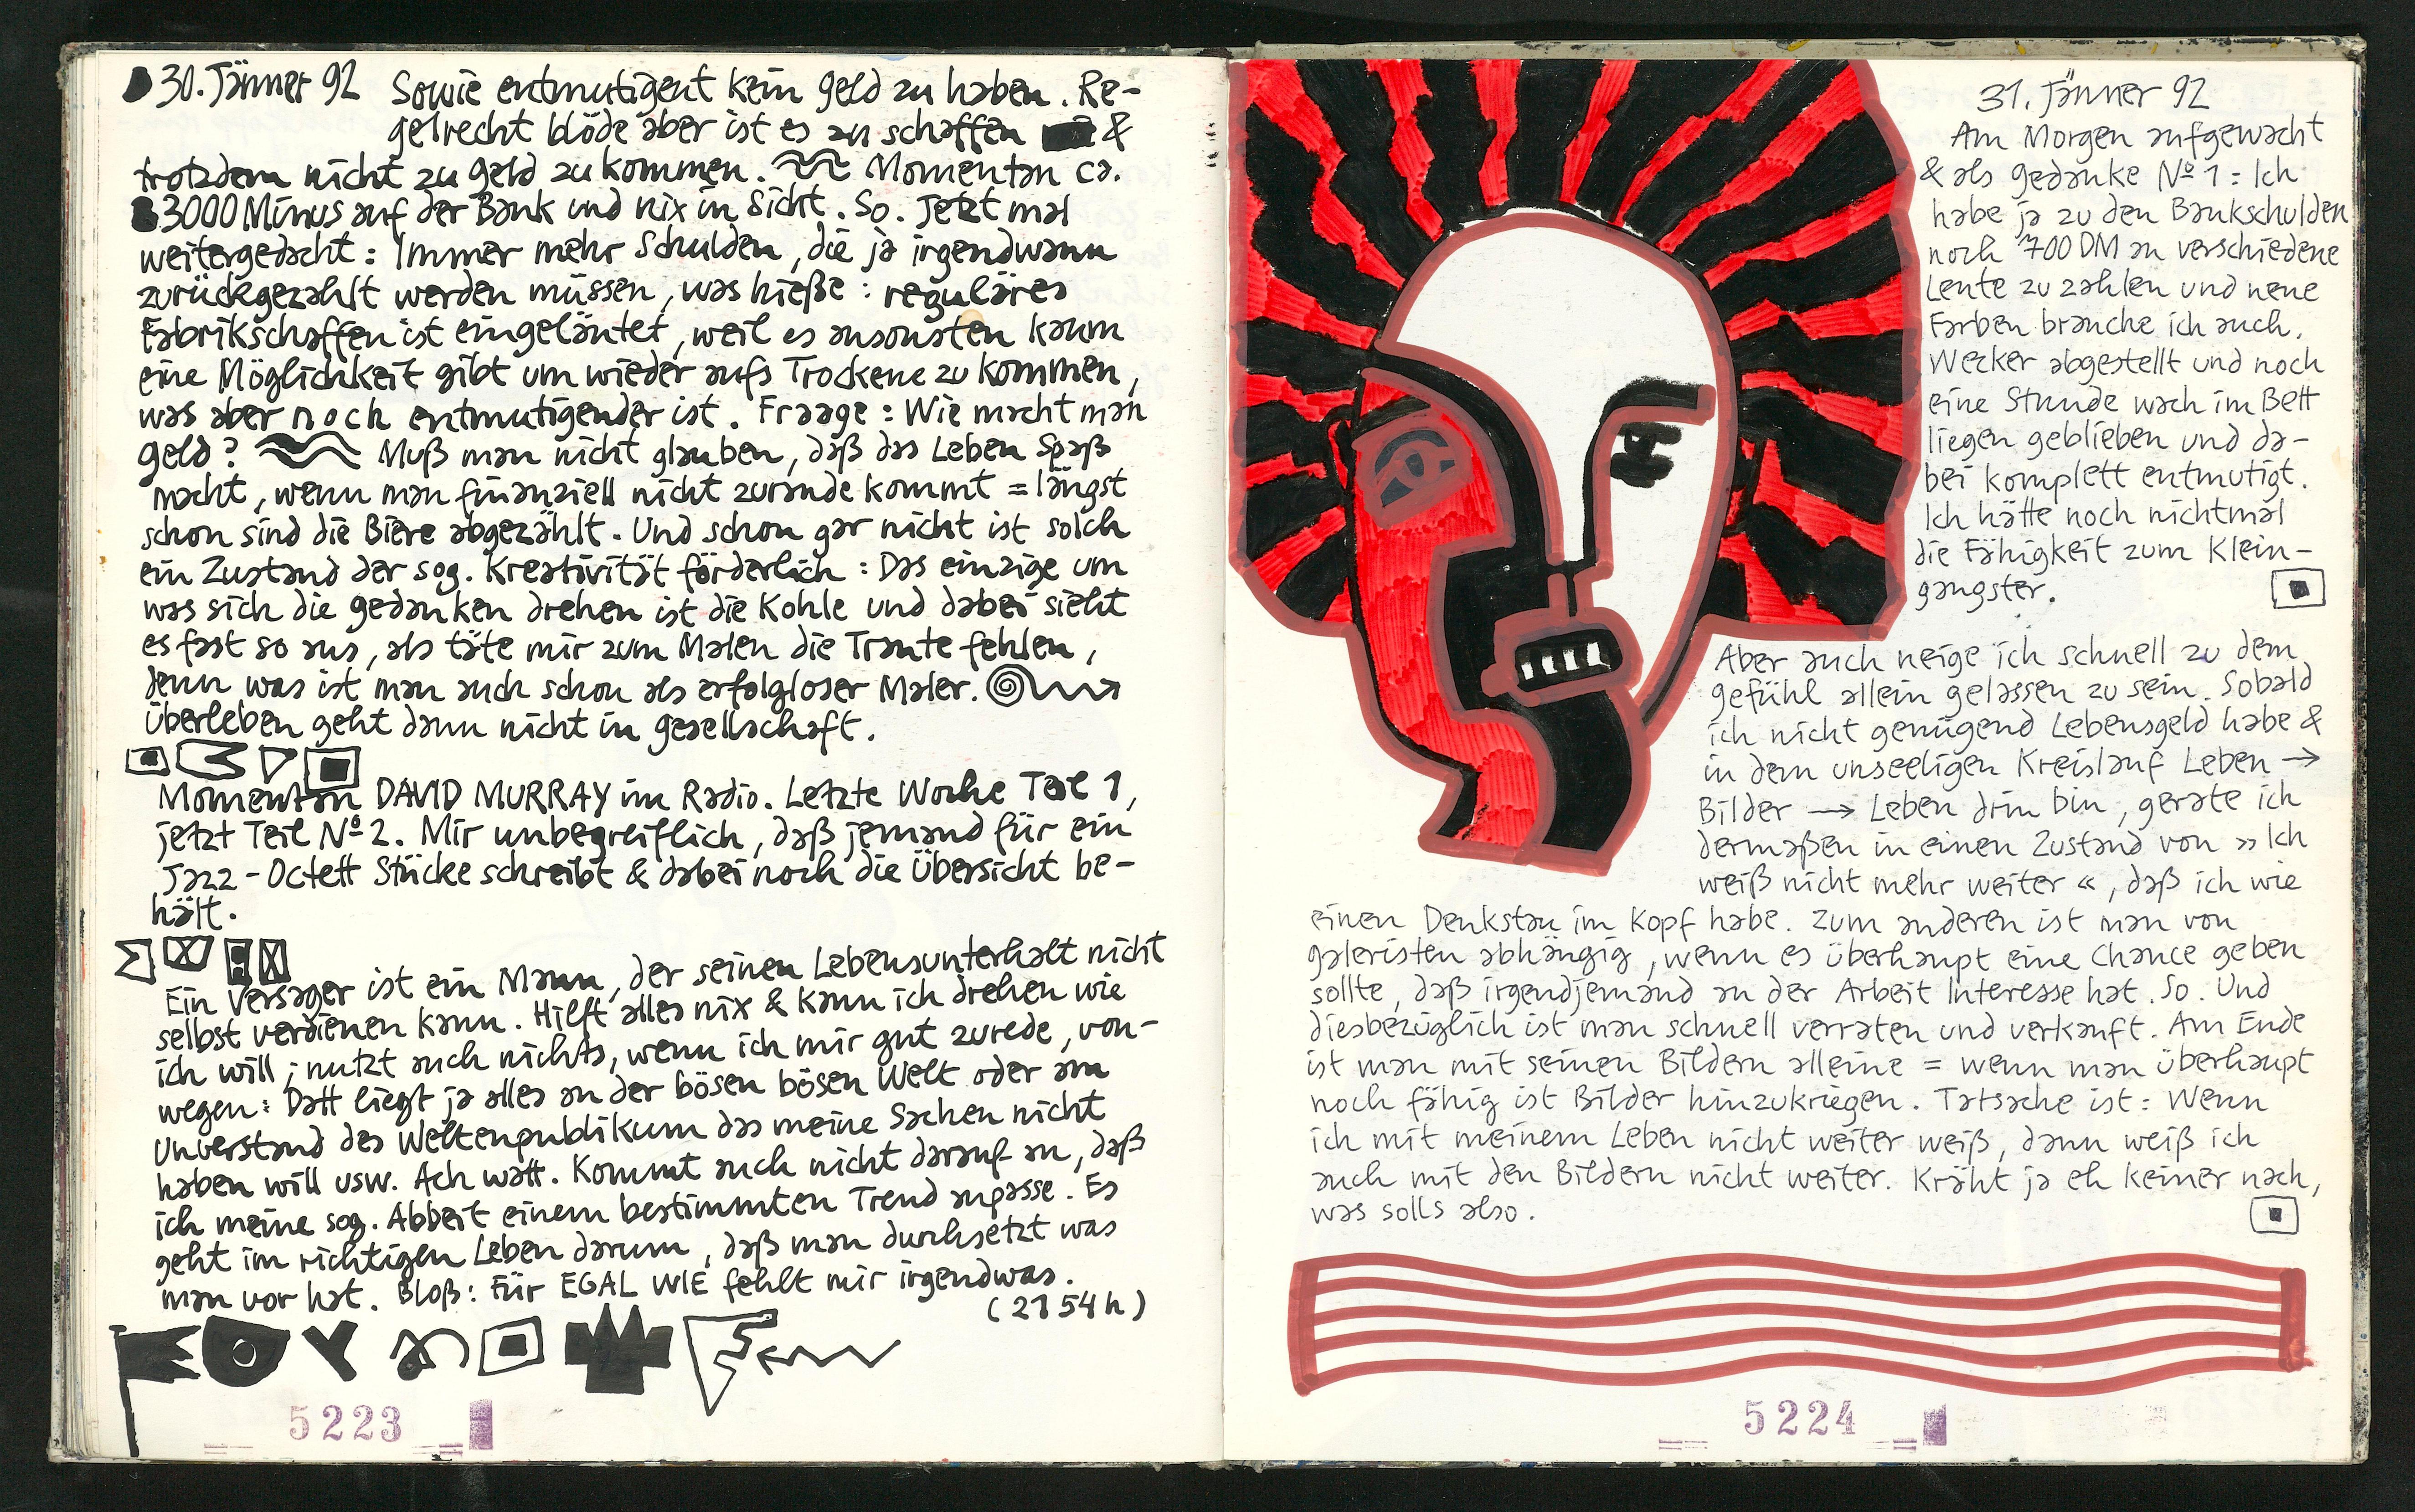 30. Jänner 92 Sowie entmutigent kein Geld zu haben. Re-
gelrecht blöde aber ist es zu schaffen &
trotzdem nicht zu Geld zu kommen. Momentan ca.
3000 Minus auf der Bank und nix in Sicht. So. Jetzt mal
weitergedacht: Immer mehr Schulden, die ja irgendwann
zurückgezahlt werden müssen, was hieße: reguläres
Fabrikschaffen ist eingeläutet, weil es ansonsten kaum
eine Möglichkeit gibt um wieder aufs Trockene zu kommen,
was aber noch entmutigender ist. Fraage: Wie macht man
Geld? Muß man nicht glauben, daß das Leben Spaß
macht, wenn man finanziell nicht zurande kommt = längst
schon sind die Biere abgezählt. Und schon gar nicht ist solch
ein Zustand der sog. Kreativität förderlich: Das einzige um
was sich die Gedanken drehen ist die Kohle und dabei sieht
es fast so aus, als täte mir zum Malen die Traute fehlen,
denn was ist man auch schon als erfolgloser Maler.
Überleben geht dann nicht in Gesellschaft.
Momentan DAVID MURRAY im Radio. Letzte Woche Teil 1,
jetzt Teil Nº 2. Mir unbegreiflich, daß jemand für ein
Jazz-Octett Stücke schreibt & dabei noch die Übersicht be-
hält.
Ein Versager ist ein Mann, der seinen Lebensunterhalt nicht
selbst verdienen kann. Hilft alles nix & kann ich drehen wie
ich will; nutzt auch nichts, wenn ich mir gut zurede, von-
wegen: Datt liegt ja alles an der bösen bösen Welt oder am
Unverstand des Weltenpublikum das meine Sachen nicht
haben will usw. Ach watt. Kommt auch nicht darauf an, daß
ich meine sog. Abbeit einem bestimmten Trend anpasse. Es
geht im richtigen Leben darum, daß man durchsetzt was
man vor hat. Bloß: Für EGAL WIE fehlt mir irgendwas.
(21 54 h)
5223
31. Jänner 92
Am Morgen aufgewacht
& als Gedanke Nº 1: Ich
habe ja zu den Bankschulden
noch 700 DM an verschiedene
Leute zu zahlen und neue
Farben brauche ich auch.
Wecker abgestellt und noch
eine Stunde wach im Bett
liegen geblieben und da-
bei komplett entmutigt.
Ich hätte noch nichtmal
die Fähigkeit zum Klein-
gangster.
Aber auch neige ich schnell zu dem
Gefühl allein gelassen zu sein. Sobald
ich nicht genügend Lebensgeld habe &
in dem unseeligen Kreislauf Leben →
Bilder → Leben drin bin, gerate ich
dermaßen in einen Zustand von »Ich
weiß nicht mehr weiter«, daß ich wie
einen Denkstau im Kopf habe. Zum anderen ist man von
Galeristen abhängig, wenn es überhaupt eine Chance geben
sollte, daß irgendjemand an der Arbeit Interesse hat. So. Und
diesbezüglich ist man schnell verraten und verkauft. Am Ende
ist man mit seinen Bildern alleine = wenn man überhaupt
noch fähig ist Bilder hinzukriegen. Tatsache ist: Wenn
ich mit meinem Leben nicht weiter weiß, dann weiß ich
auch mit den Bildern nicht weiter. Kräht ja eh keiner nach,
was solls also.
5224